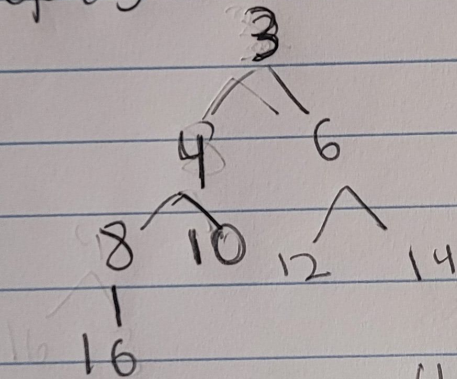 3
4 6
8 10 12 14
16